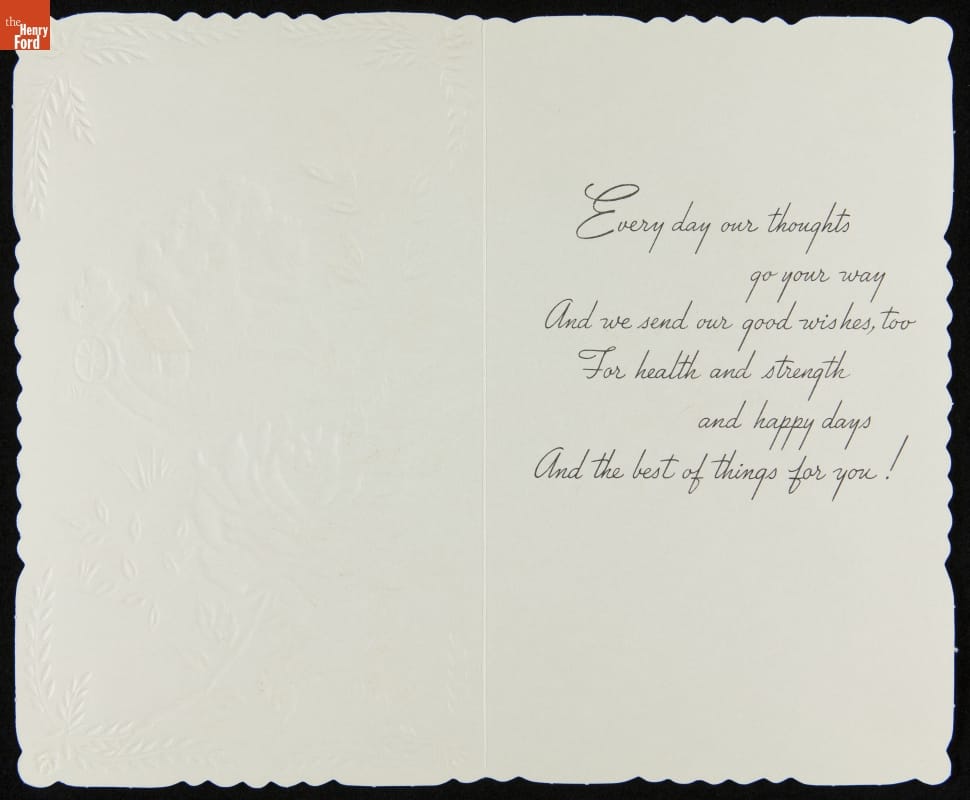 the
Henry
Ford
Every day our thoughts
go your way
And we send our good wishes, too
For health and strength
and happy days
And the best of things for you!